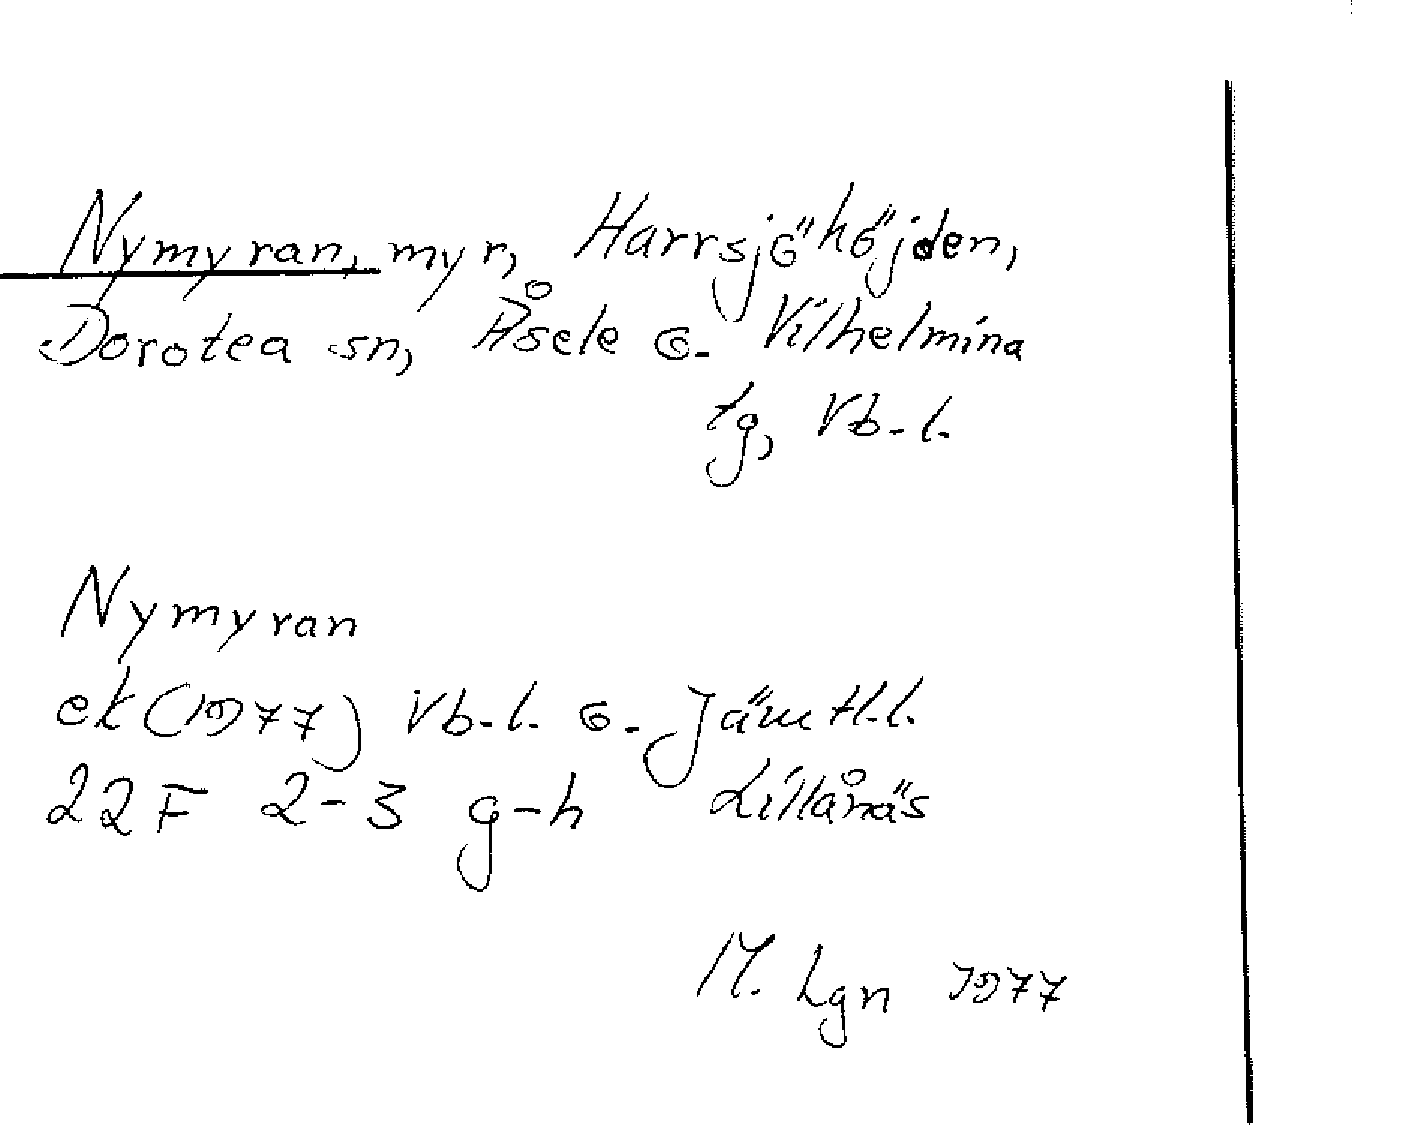 Nymyran, myr, Harrsjöhöjden,
Dorotea sn, Åsele o. Vilhelmina
tg, Vb-l.
Nymyran
ek (1977) Vb-l. o. Jämtl.l.
22F 2-3 g-h Lillånäs
M. Lgn 1977